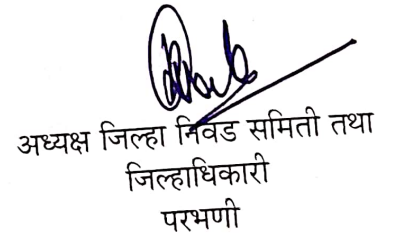 अध्यक्ष जिल्हा निवड समिती तथा
जिल्हाधिकारी
परभणी